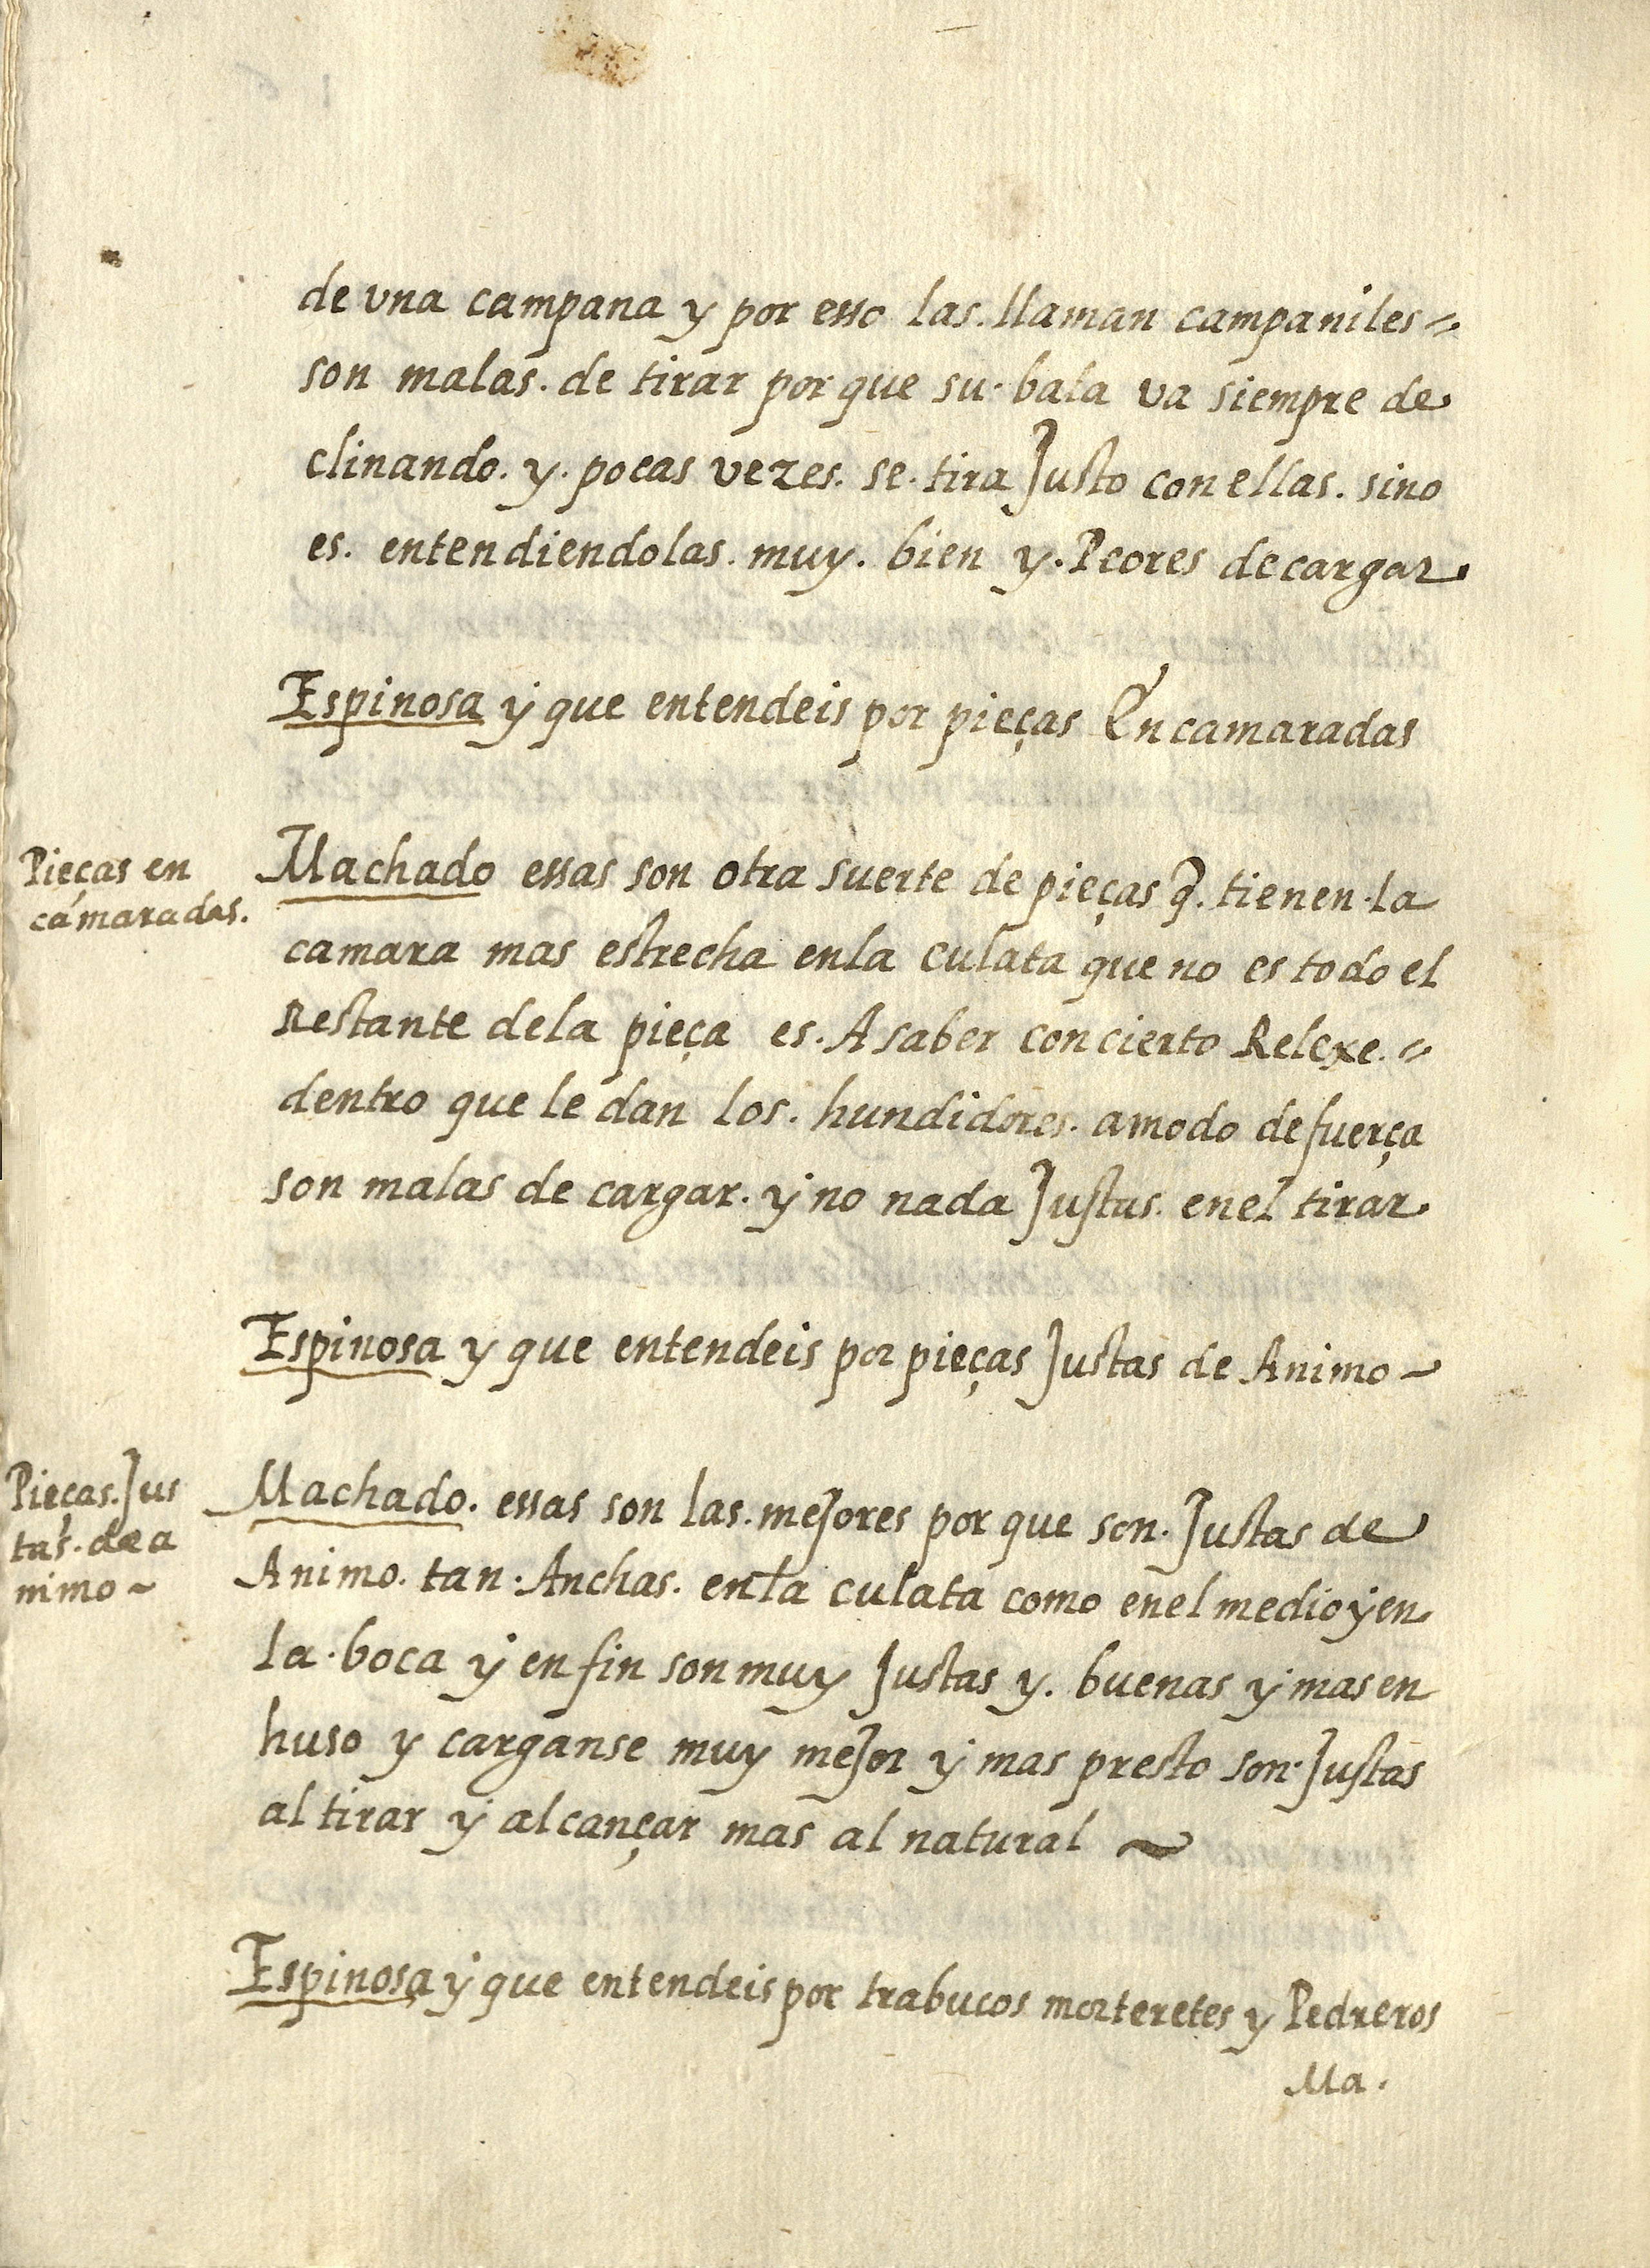 de vna campana y por esso las. llaman campaniles =
son malas. de tirar por que su. bala va siempre de
clinando. y. pocas vezes. se. tira Justo con ellas. sino
es. entendiendolas. muy. bien y. Peores de cargar
Espinosa y que entendeis por pieças Encamaradas
Pieças en
camaradas.
Machado essas son otra suerte de pieças q̃. tienen. la
camara mas estrecha enla culata que no es todo el
Restante dela pieça es. A saber con cierto Relexe. =
dentro que le dan los. hundidores. a modo de fuerça
son malas de cargar. y no nada Justas. enel tirar.
Espinosa y que entendeis por pieças Justas de Animo ~
Pieças. Jus
tas. de a
nimo ~
Machado. essas son las. meJores por que son. Justas de
Animo. tan. Anchas. enla culata como enel medio y en
la. boca y en fin son muy Justas y. buenas y mas en
huso y carganse muy meJor y mas presto son. Justas
al tirar y alcançar mas al natural ~
Espinosa y que entendeis por trabucos morteretes y Pedreros
Ma.